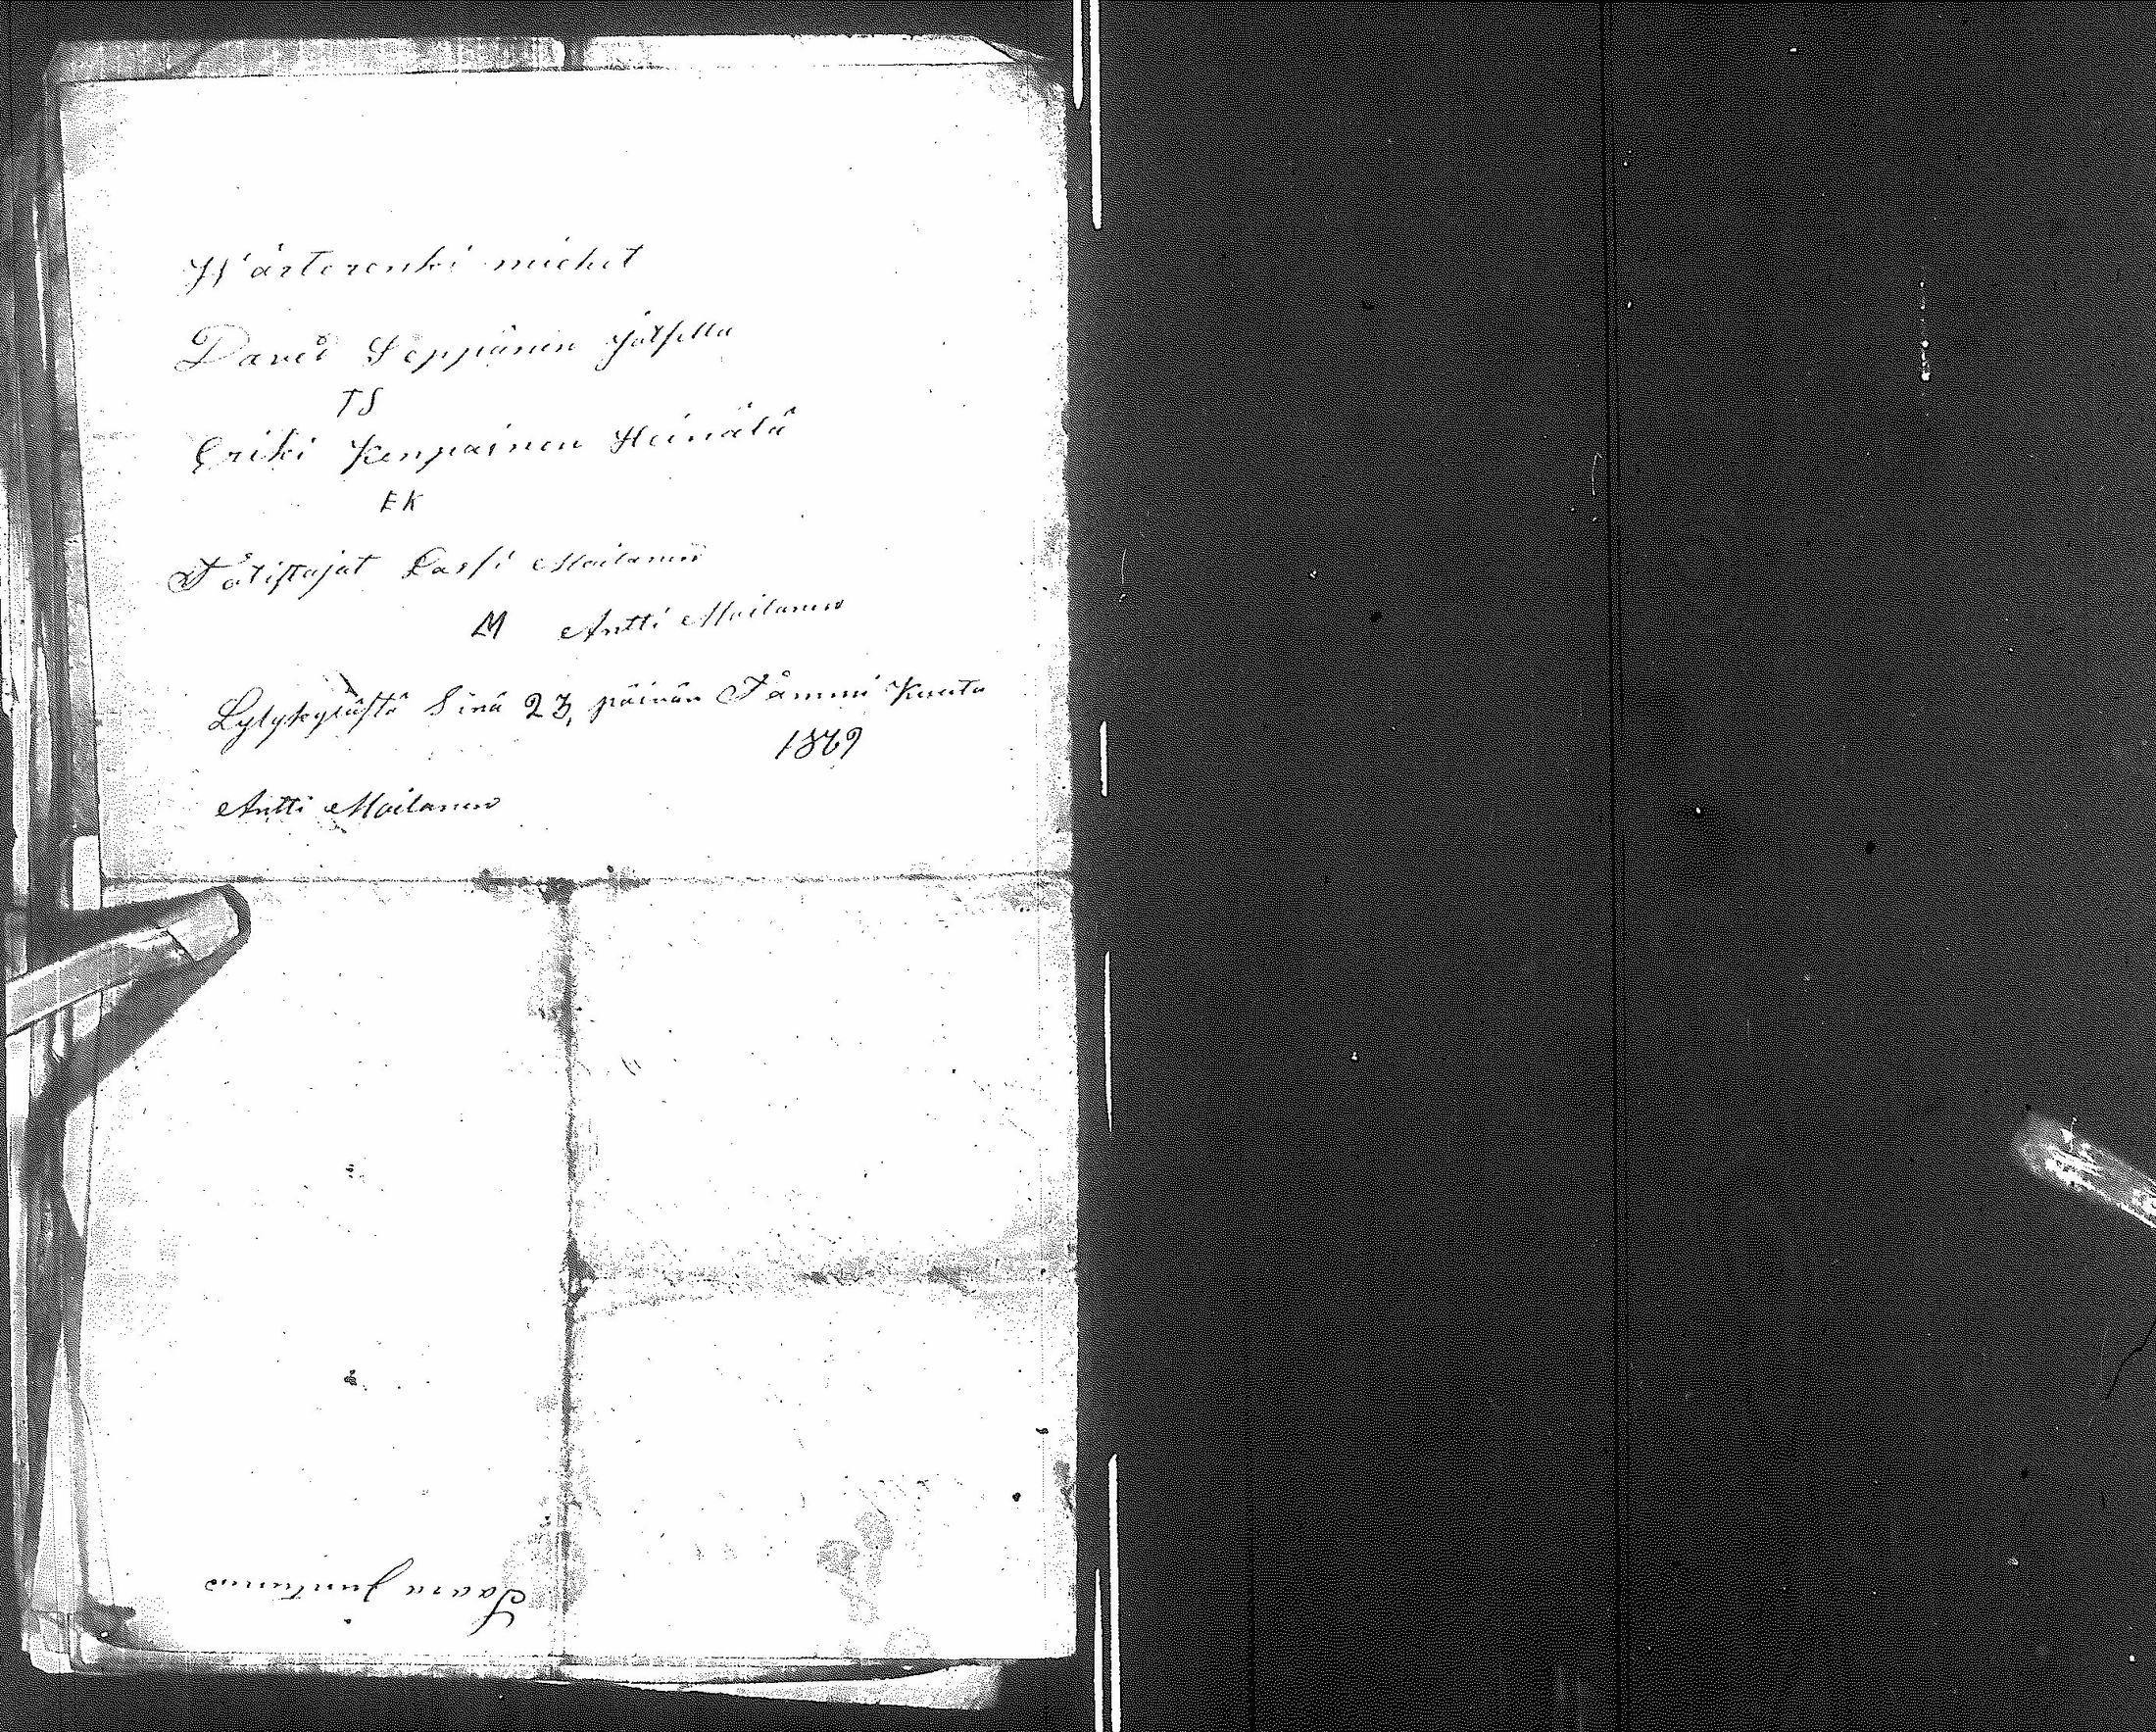 Wärterenki miehet
David Seppänen Jälsellä
TS
Eriki Kenpainen Heinälä
EK
Totistajat Lassi Moilanen
LM Antti Moilanen
Lylykylästä Sinä 23, päivän Tammi Kuuta
1869
Antti Moilanen
Saara Juntunen